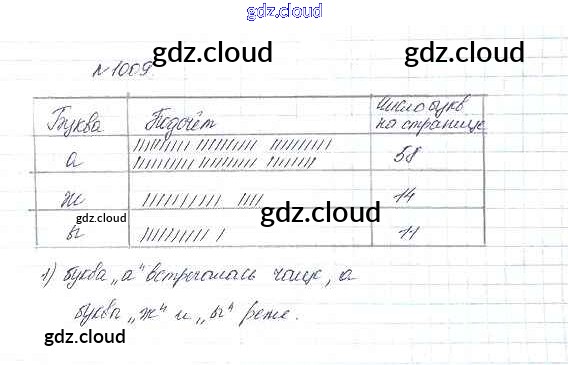 gdz.cloud
gdz.cloud gdz.cloud
№1009.
Буква Подсчёт Число букв
на странице
а 58
ж 14
gdz.cloud gdz.cloud
ы 11
1) буква „а" встречалась чаще, а
буквы „ж" и „ы" реже.
gdz.cloud gdz.cloud